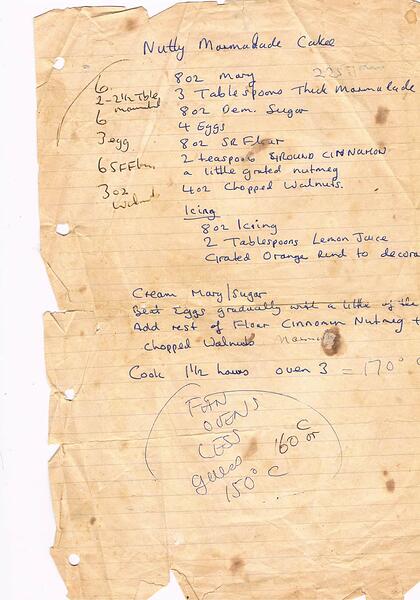 Nutty Marmalade Cake
6 8oz Marg
2-2½ Tble 3 Tablespoons Thick Marmalade
6 8oz Dem. Sugar
3 egg 4 Eggs
6 SF 8oz SR Flour
2 teaspoons GROUND CINNAMON
a little grated nutmeg
3oz 4oz Chopped Walnuts.
Icing
8oz Icing
2 Tablespoons Lemon Juice
Grated Orange Rind to decora
Cream Marg/Sugar
Beat Eggs gradually with a little of the
Add rest of Flour Cinnamon Nutmeg +
chopped Walnuts
Cook 1½ hours oven 3 = 170°
FAN
OVENS
LESS
160°C or
150°C